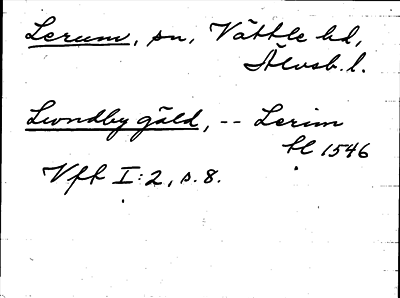 Lerum, sn, Vättle hd,
Älvsb. l.
Lwndby gäld, -- Lerim
hl 1546
Vfh I:2, s. 8.